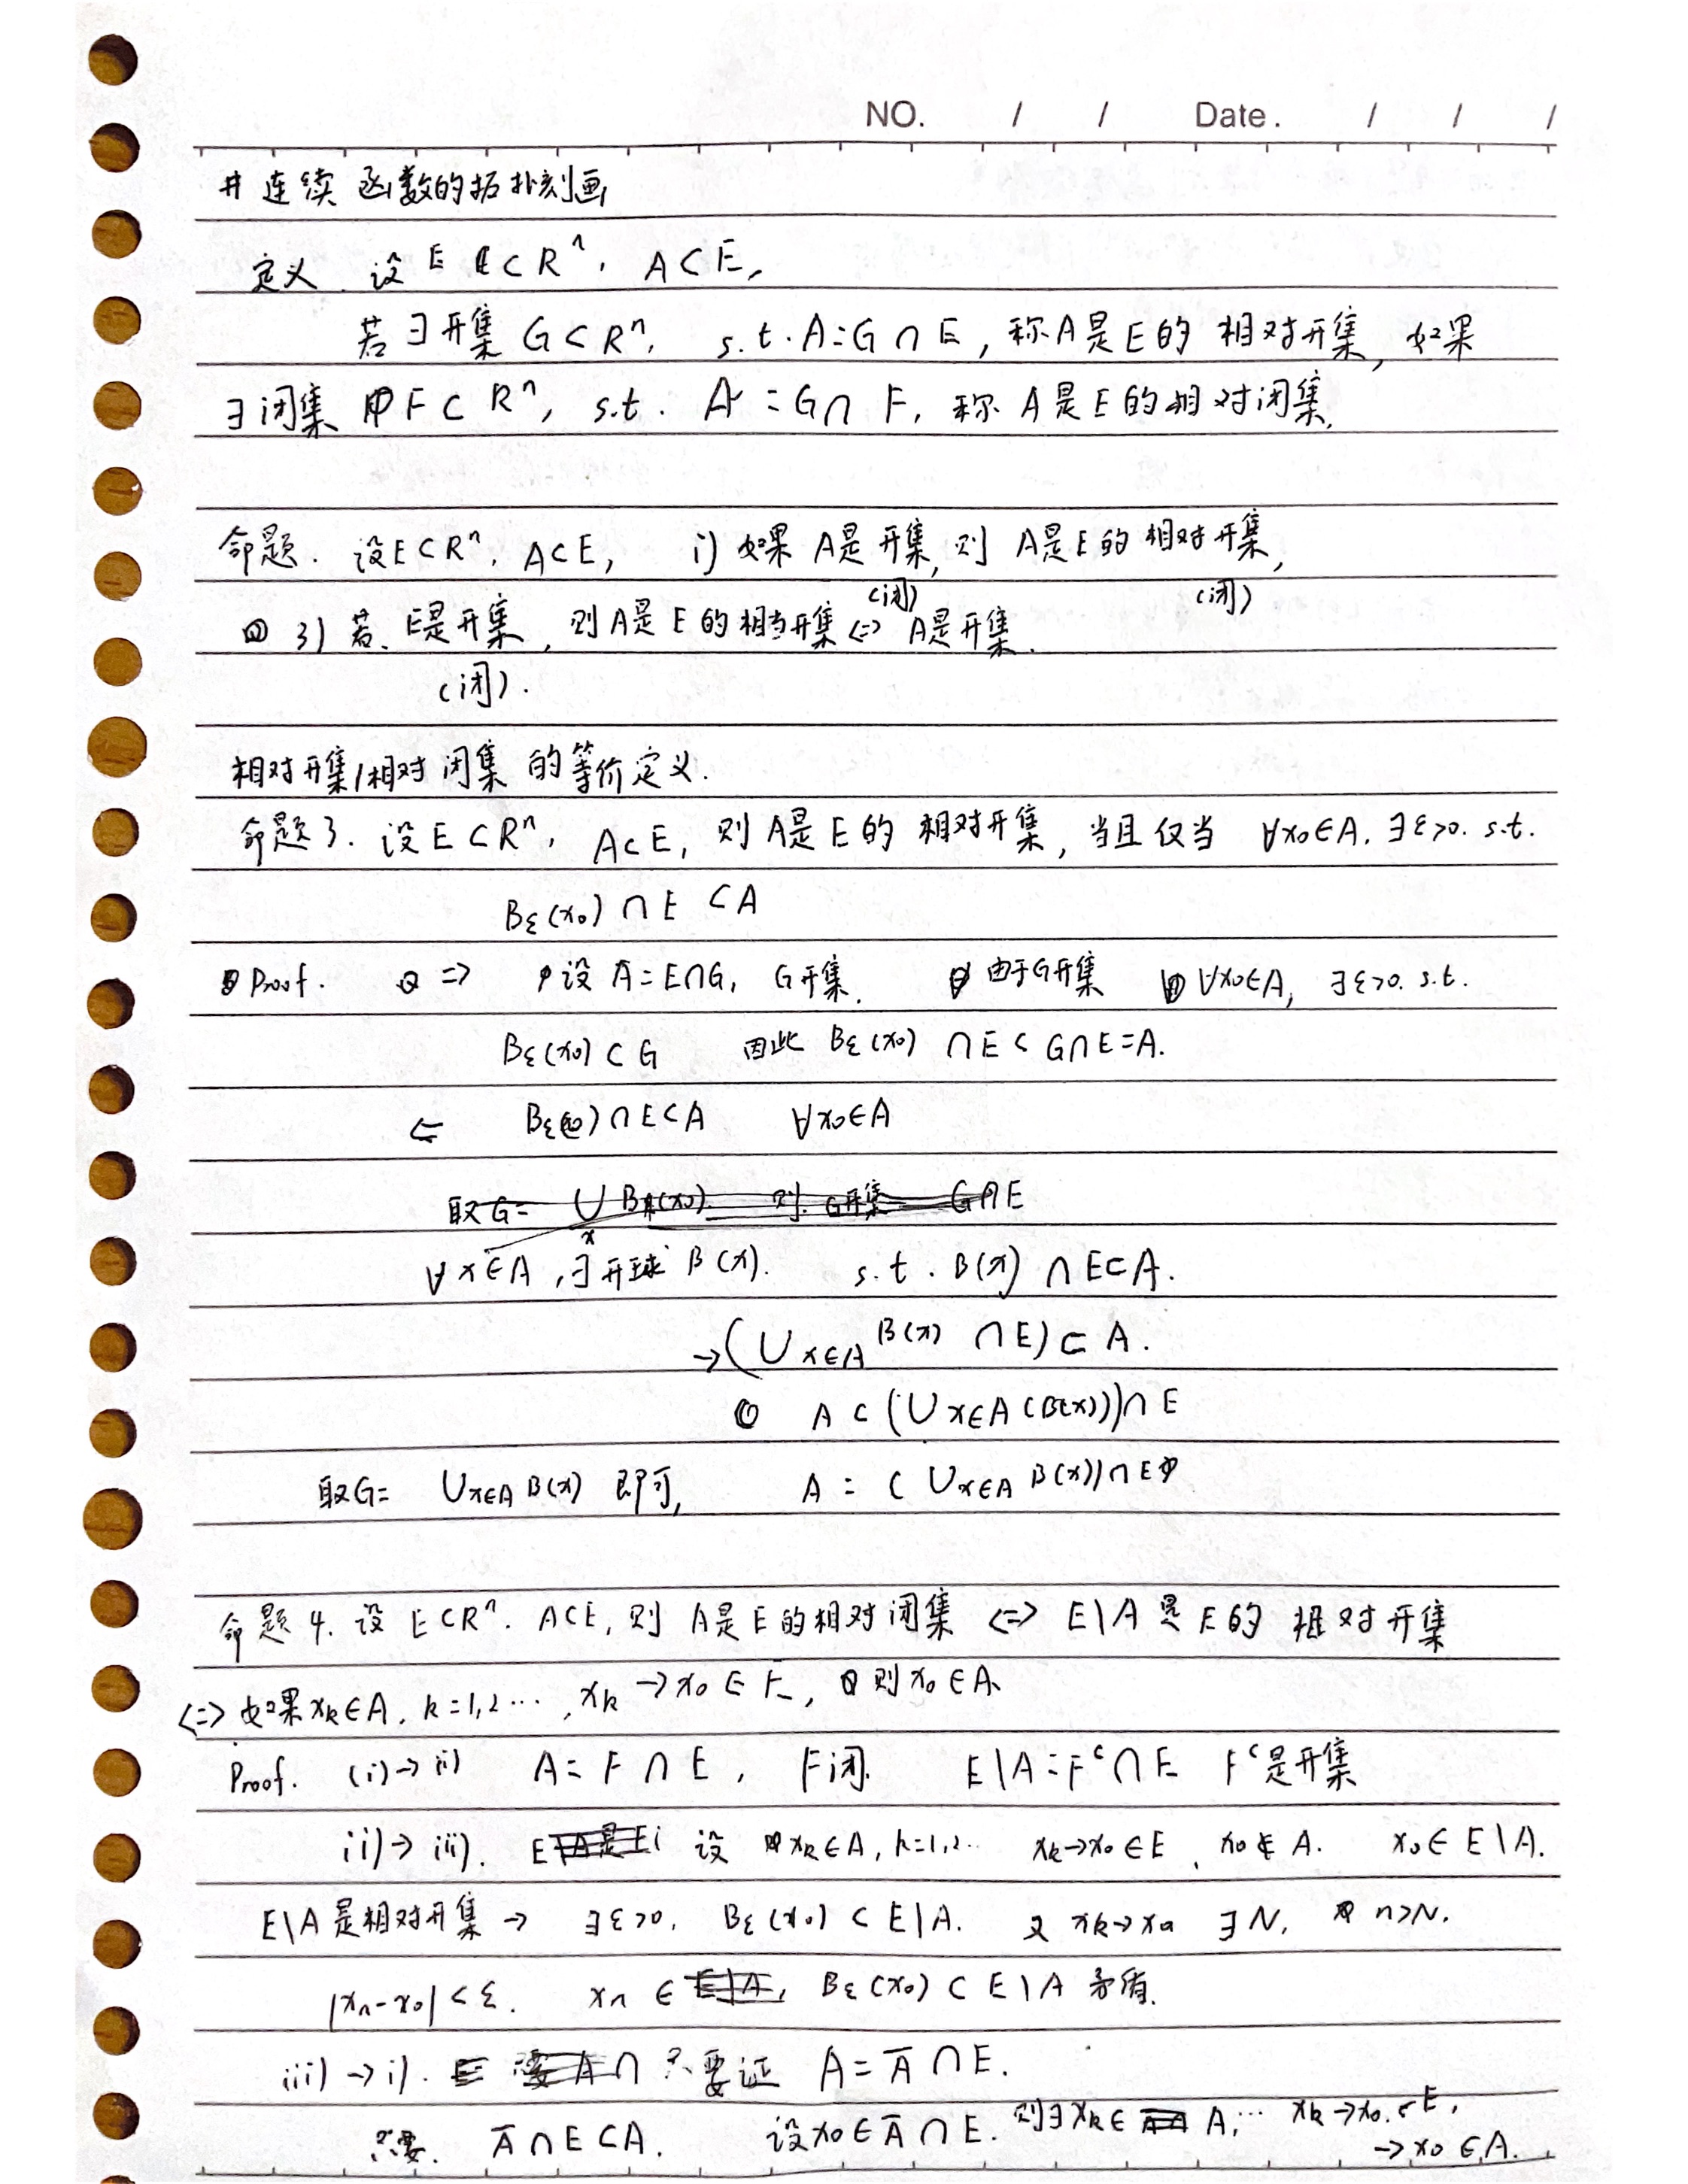 NO. / / Date. / / /
# 连续函数的拓扑刻画
定义. 设 E ⊂ Rⁿ, A⊂E,
若∃开集 G⊂Rⁿ, s.t. A=G∩E, 称A是E的相对开集, 如果
∃闭集 F⊂Rⁿ, s.t. A=G∩F, 称A是E的相对闭集.
命题. 设E⊂Rⁿ, A⊂E, i) 如果A是开集, 则A是E的相对开集,
(闭) (闭)
3) 若E是开集, 则A是E的相当开集 <=> A是开集.
(闭).
相对开集/相对闭集的等价定义.
命题3. 设E⊂Rⁿ, A⊂E, 则A是E的相对开集, 当且仅当 ∀x₀∈A, ∃ε>0. s.t.
Bε(x₀)∩E ⊂A
Proof. => 设A=E∩G, G开集. 由于G开集 ∀x₀∈A, ∃ε>0. s.t.
Bε(x₀)⊂G 因此 Bε(x₀)∩E⊂G∩E=A.
<= Bε(x₀)∩E⊂A ∀x₀∈A
取G= ∪ B(x₀). 则. G开集 G∩E
x
∀x∈A, ∃开球 B(x). s.t. B(x)∩E⊂A.
→(∪x∈A B(x) ∩E)⊂A.
A⊂(∪x∈A(B(x)))∩E
取G= ∪x∈A B(x) 即可, A=(∪x∈A B(x))∩E
命题4. 设E⊂Rⁿ. A⊂E, 则A是E的相对闭集 <=> E\A是E的相对开集
<=> 如果xₖ∈A, k=1,2…, xₖ→x₀∈E, 则x₀∈A.
Proof. (i)→ii) A=F∩E, F闭. E\A=Fᶜ∩E Fᶜ是开集
ii)→iii). E\A是E 设 xₖ∈A, k=1,2… xₖ→x₀∈E, x₀∉A. x₀∈E\A.
E\A是相对开集→ ∃ε>0, Bε(x₀)⊂E\A. 又 xₖ→x₀ ∃N, n>N,
|xₙ-x₀|<ε. xₙ∈ E\A, Bε(x₀)⊂E\A 矛盾.
iii)→i). 要 A∩ 只要证 A=Ā∩E.
只要. Ā∩E⊂A. 设x₀∈Ā∩E. 则∃xₖ∈ A,… xₖ→x₀∈E,
→x₀∈A.